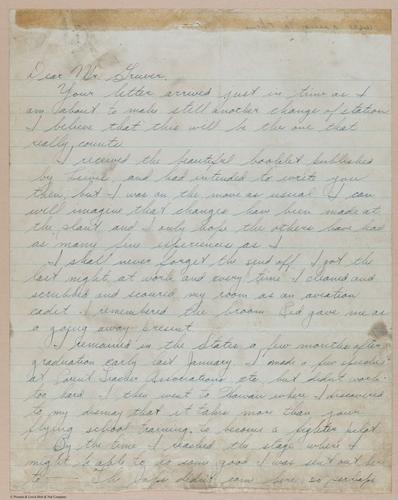 Dear Mr. Gruver,
Your letter arrived just in time as I
am about to make still another change of station
I believe that this will be the one that
really counts
I received the beautiful booklet published
by and had intended to write you
then, but I was on the move as usual. I can
well imagine that changes have been made at
the plant and I only hope the others have had
as many fine experiences as I.
I shall never forget the send off I got the
last night at work and every time I cleaned and
scrubbed and scoured my room as an aviation
cadet. I remembered the broom Red gave me as
a going away present.
I remained in the States a few months after
graduation early last January. I made a few speeches
at Parent Teacher Associations etc but didn't work
too hard. I then went to Hawaii where I discovered
to my dismay that it takes more than your
flying school training to become a fighter pilot.
By the time I reached the stage where I
might be able to do some good I was sent out here
to The Japs didn't come here so perhaps